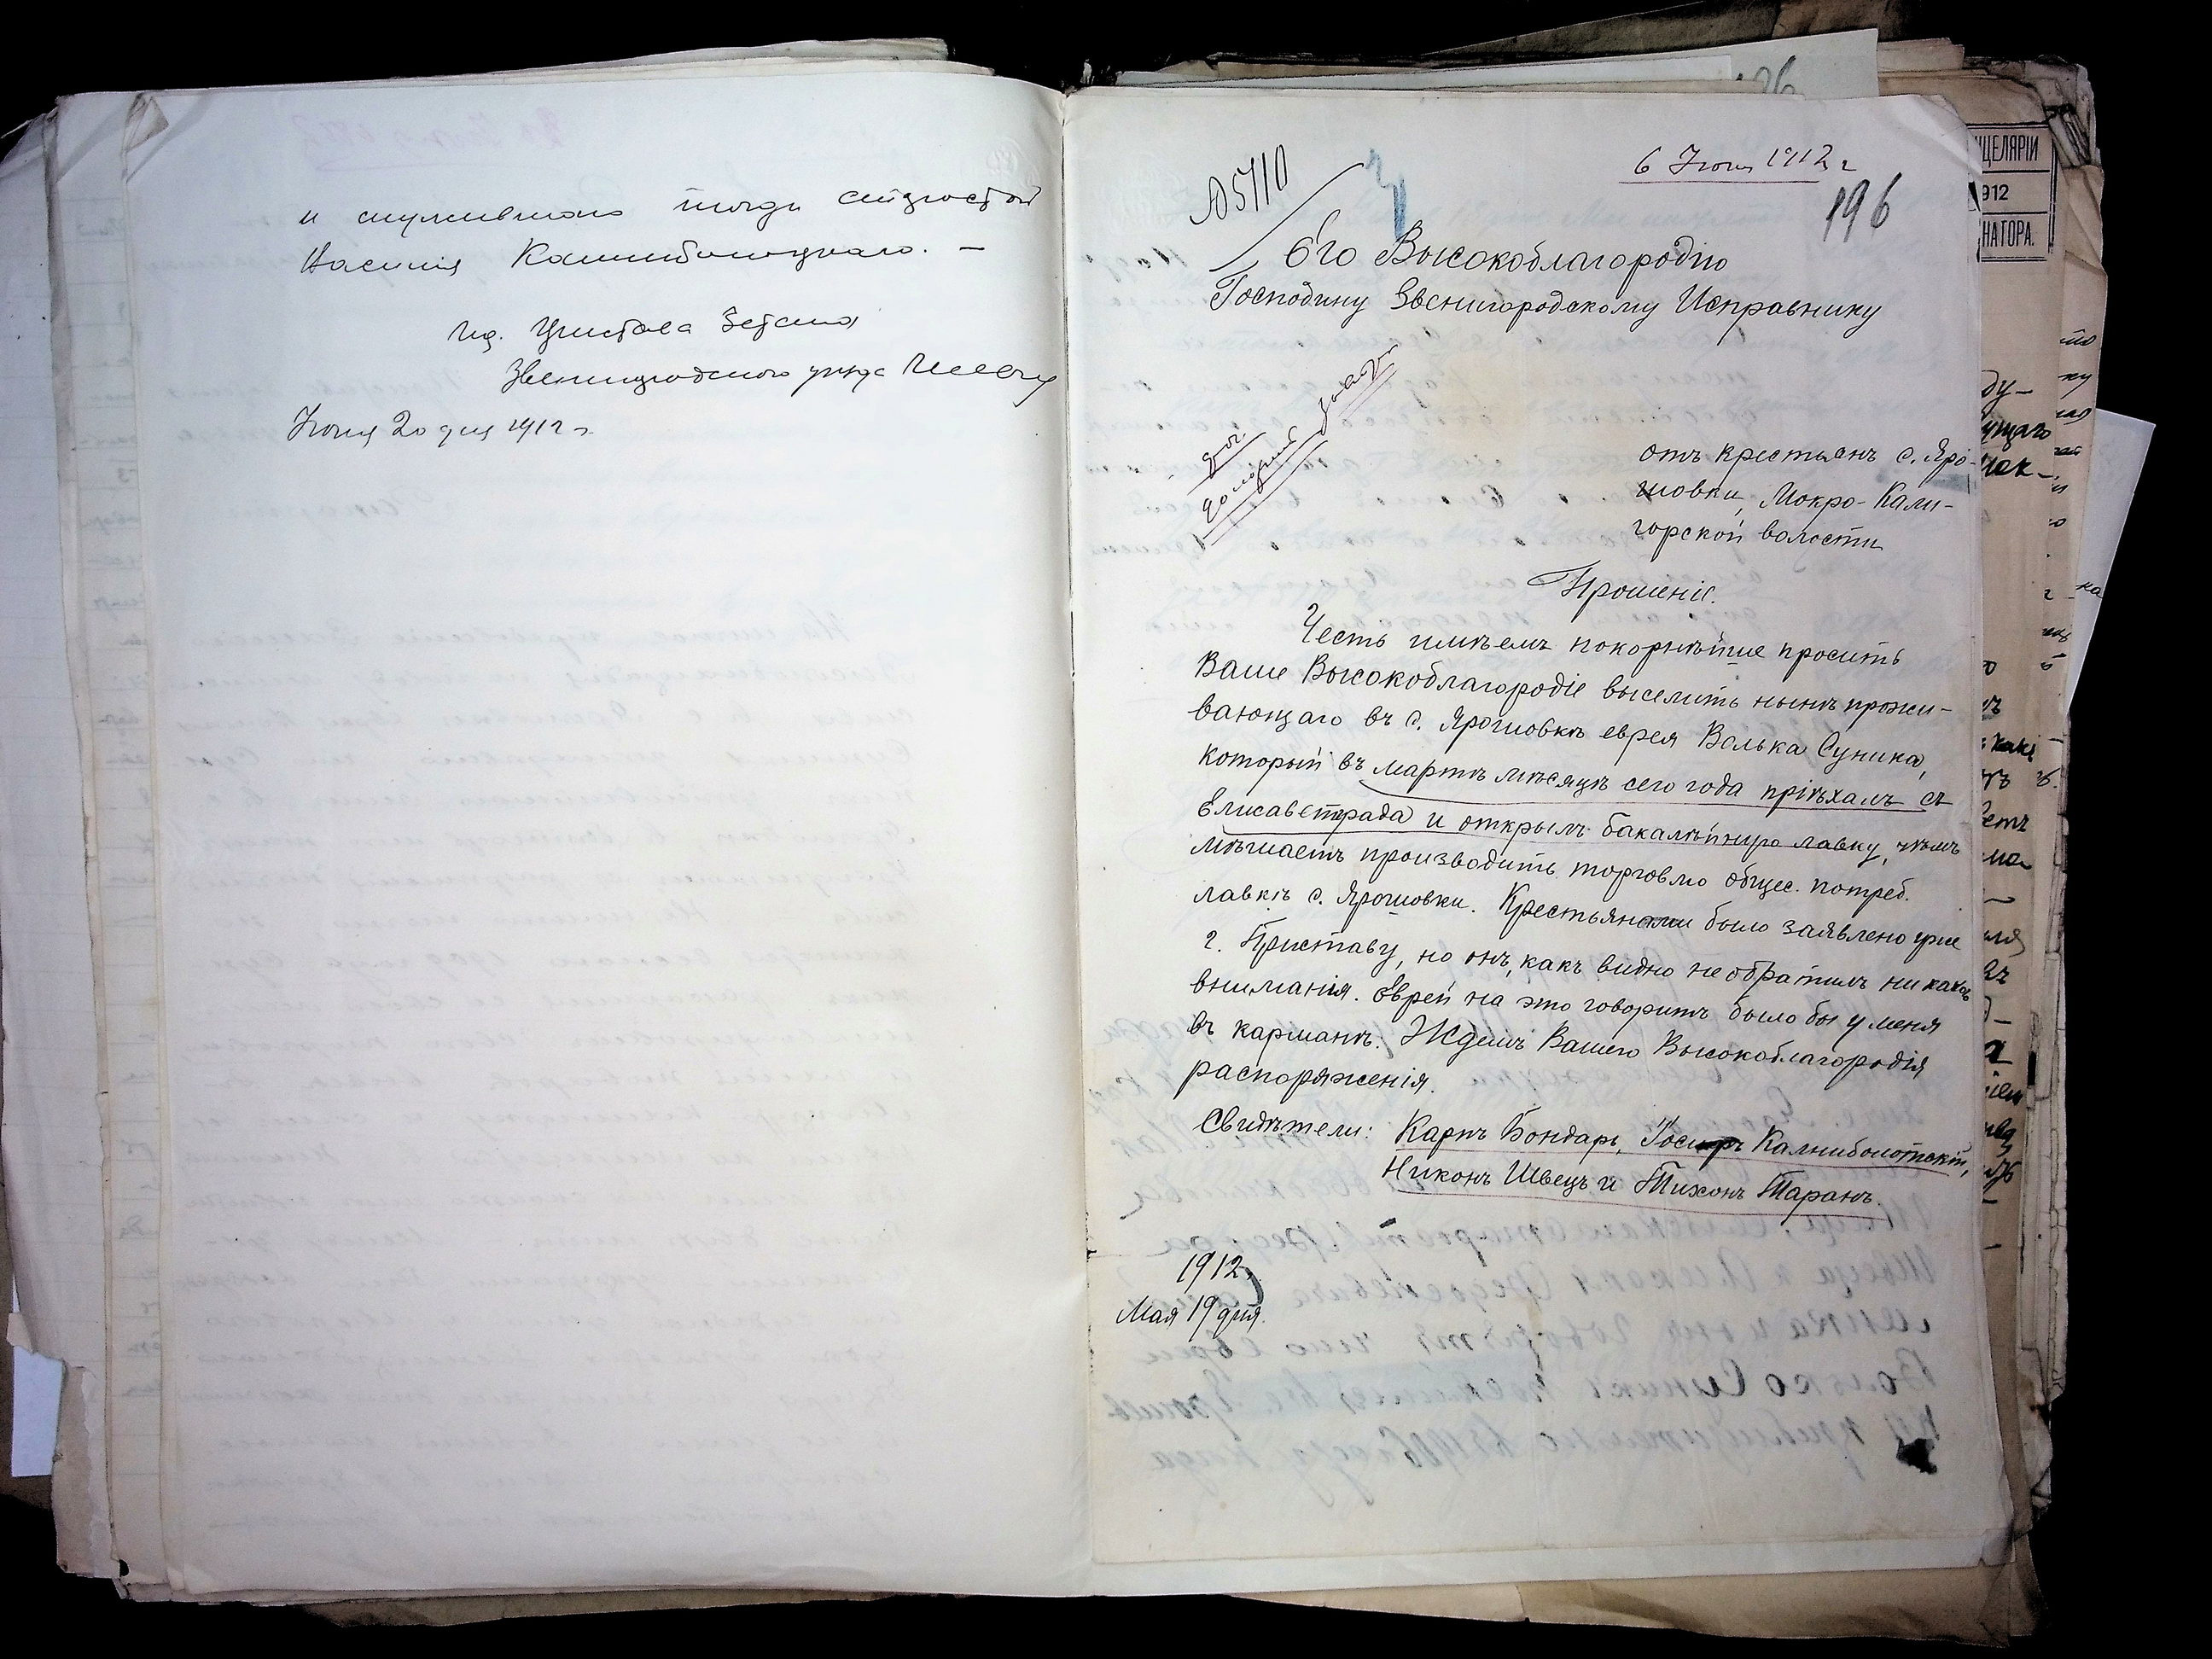 и служившаго тогда старостой
Василія Калниболоцкаго. —
Ид. Пристава 3 стана
Звенигородского уезда
Іюня 20 дня 1912 г.
6 Іюня 1912 г
№ 5710
196
Его Высокоблагородію
Господину Звенигородскому Исправнику
отъ крестьянъ с. Яро-
шовки, Мокро-Кали-
горской волости
Прошеніе.
Честь имѣемъ покорнѣйше просить
Ваше Высокоблагородіе выселить нынѣ прожи-
вающаго въ с. Ярошовкѣ еврея Волька Суника,
который въ мартѣ мѣсяцѣ сего года пріѣхалъ съ
Елисаветграда и открылъ бакалѣйную лавку, чѣмъ
мѣшаетъ производить торговлю общес. потреб.
лавкѣ с. Ярошовки. Крестьянами было заявлено уже
г. Приставу, но онъ, какъ видно не обратилъ никаков
вниманія. Еврей на это говоритъ было бы у меня
въ карманѣ. Ждемъ Вашего Высокоблагородія
распоряженія.
Свидѣтели: Карпъ Бондарь, Іосипъ Калниболотскій,
Никонъ Швецъ и Тихонъ Таранъ.
1912 г.
Мая 19 дня.
ЦЕЛЯРІИ
912
НАТОРА.